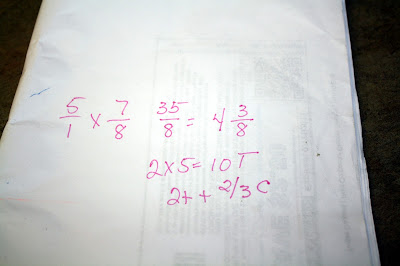 5/1 x 7/8 35/8 = 4 3/8
2x5=10T
2t + 2/3 C